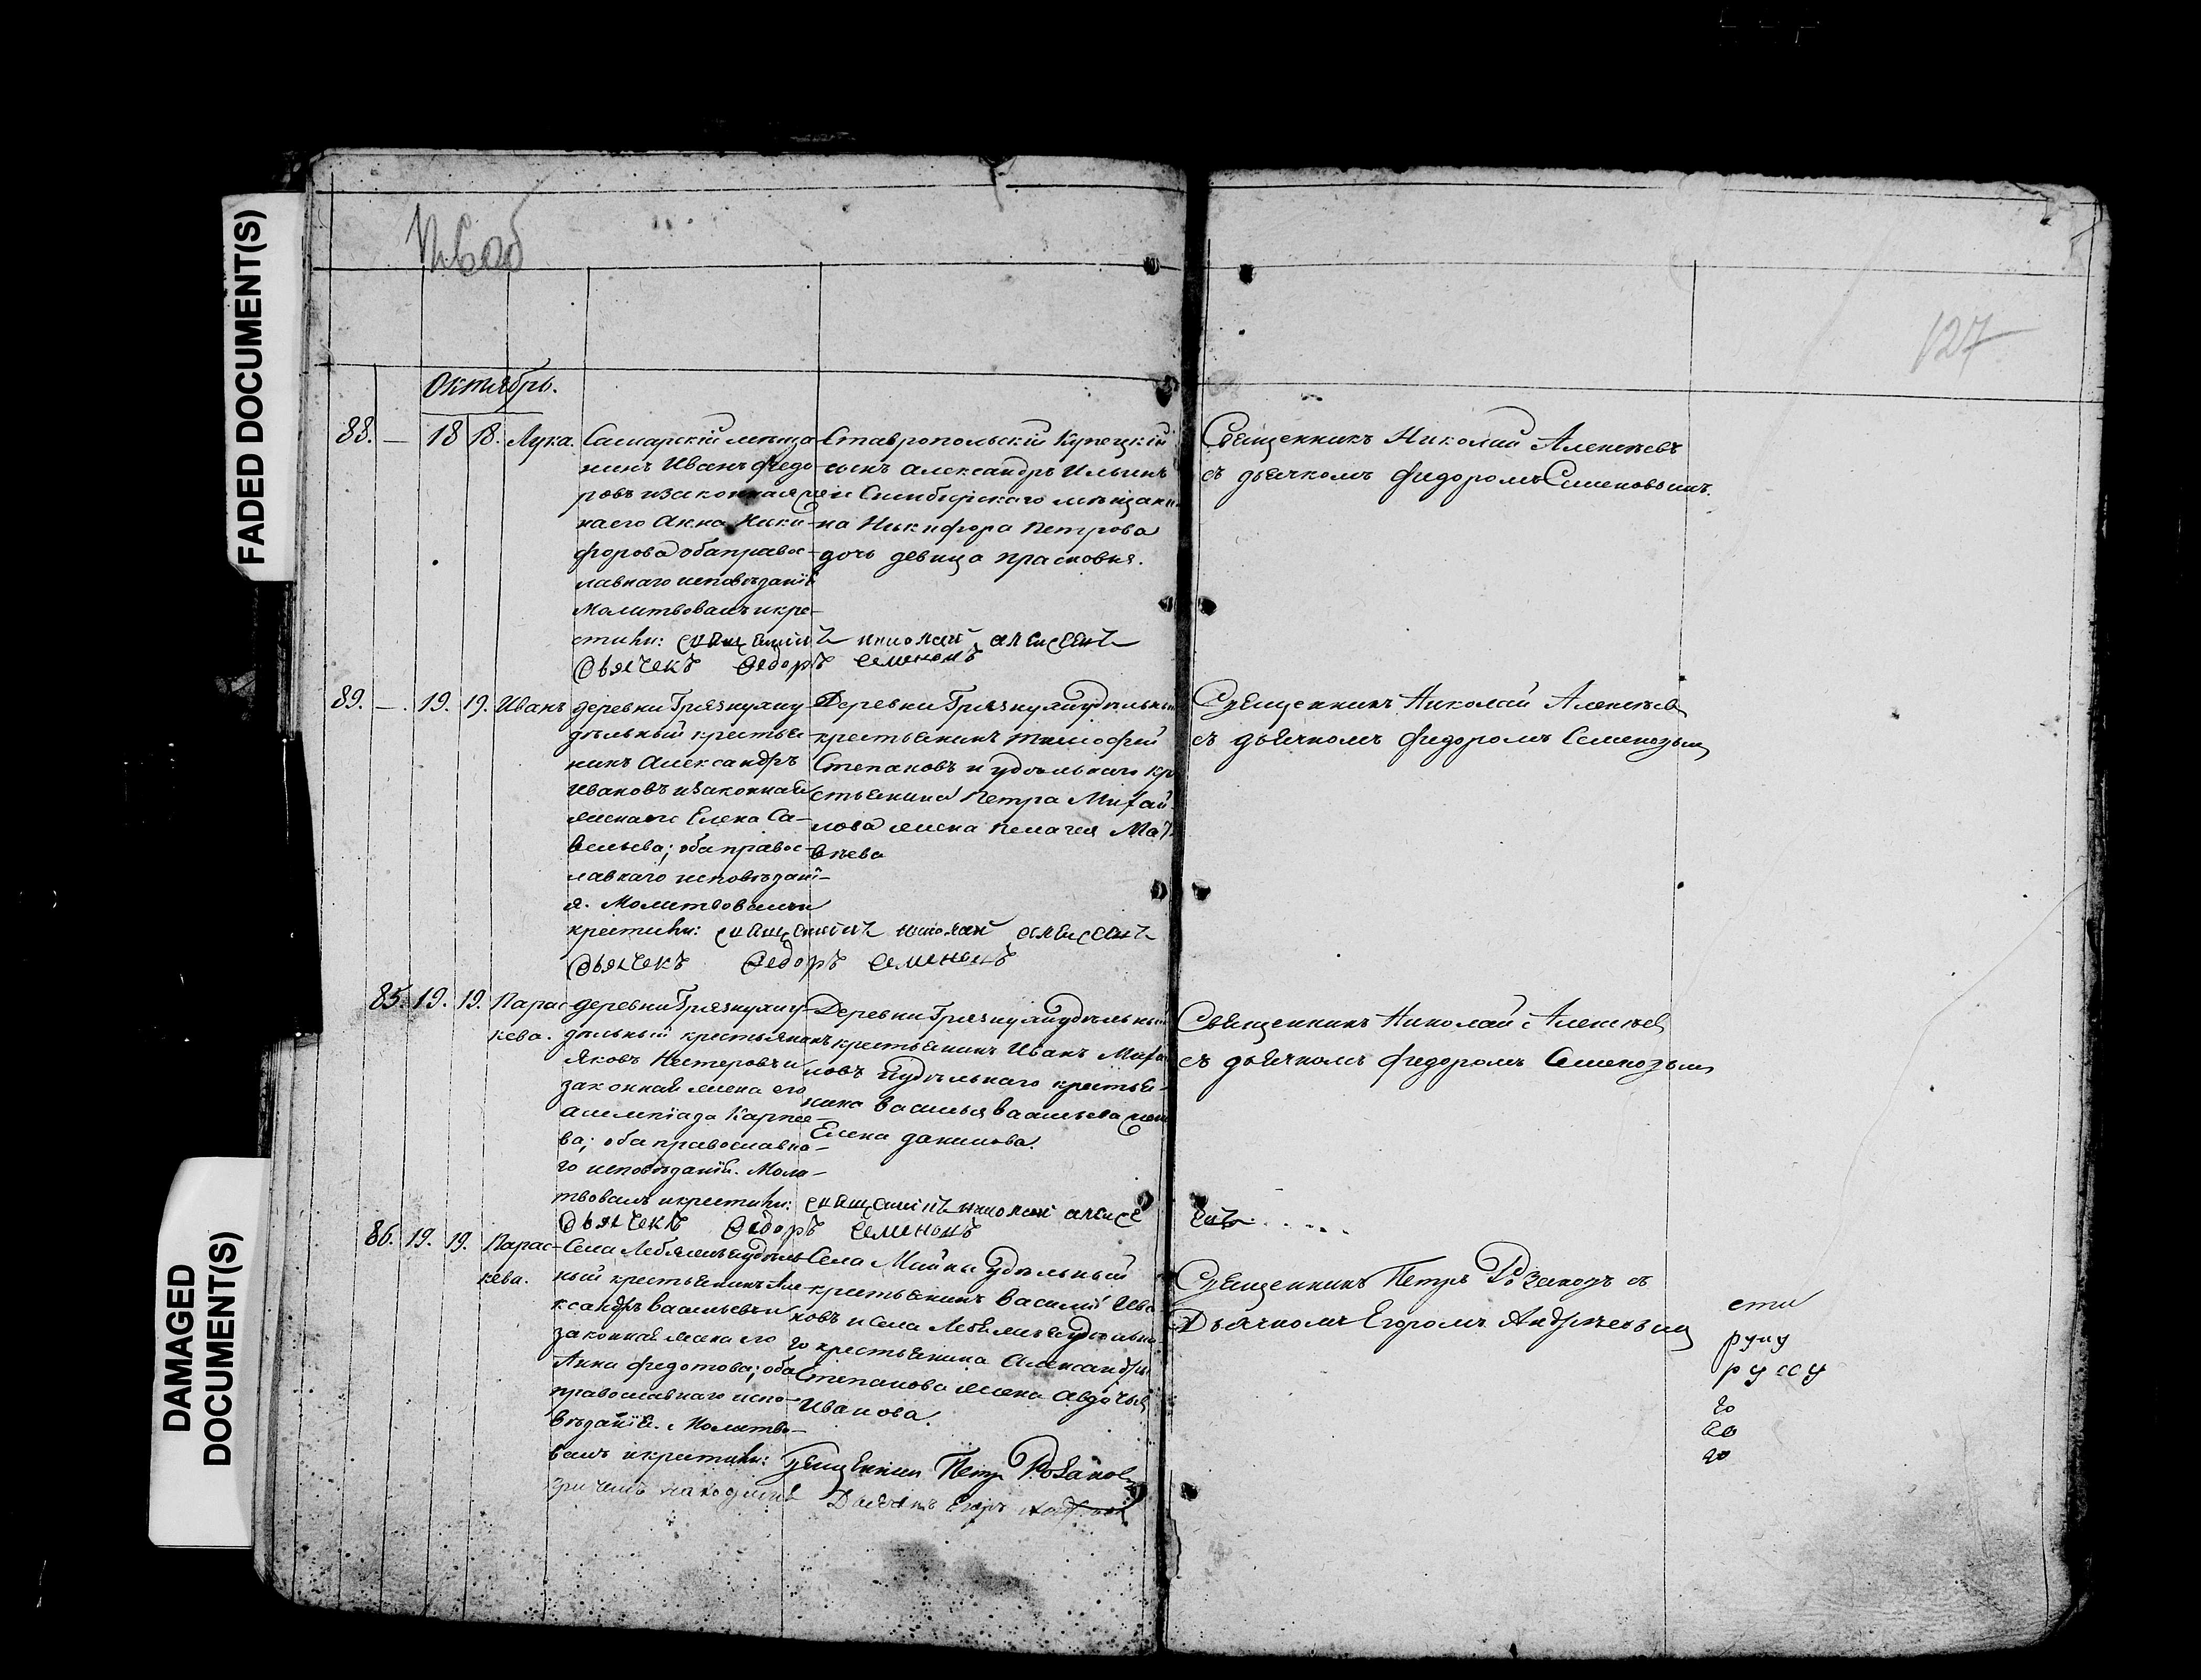 FADED DOCUMENT(S)
DAMAGED
DOCUMENT(S)
127
Октябрь.
88. — 18 18. Лука.
Самарскій мѣща-
нинъ Иванъ Федо-
ровъ и законная же-
на его Анна Ники-
форова оба правос-
лавнаго исповѣданія
Молитвовалъ и кре-
стилъ: священникъ николай алексеевъ
Дьячекъ Федоръ Семеновъ
Ставропольскій Купецкій
сынъ Александръ Ильинъ
и Симбирскаго мѣщани-
на Никифора Петрова
дочь девица Прасковья.
Священникъ Николай Алексѣевъ
съ дьячкомъ Федоромъ Семеновымъ.
89. — . 19. 19. Иванъ
деревни Грязнухи у-
дѣльный крестья-
нинъ Александръ
Ивановъ и законная
жена его Елена Са-
вельева; оба правос-
лавнаго исповѣдані-
я. Молитвовалъ и
крестилъ: священникъ николай алексеевъ
Дьячекъ Федоръ Семеновъ
Деревни Грязнухи удѣльный
крестьянинъ Тимофей
Степановъ и удѣльнаго кре
стьянина Петра Михай-
лова жена Пелагея Мат-
вѣева
Священникъ Николай Алексѣевъ
съ дьячкомъ Федоромъ Семеновым
85. 19. 19. Парас-
кева.
деревни Грязнухи у-
дѣльный крестьянинъ
Яковъ Нестеровъ и
законная жена его
Алимпіада Карпее-
ва; оба православна-
го исповѣданія. Моли-
твовалъ и крестилъ: священникъ николай алексе
Дьячекъ Федоръ Семеновъ
Деревни Грязнухи удѣльный
крестьянинъ Иванъ Михай
ловъ и удѣльнаго крестья-
нина Василья Васильева жена
Елена Данилова.
Священникъ Николай Алексѣев
съ дьячкомъ Федоромъ Семеновым
евъ. . . . .
86. 19. 19. Парас-
кева.
Села Лебяжья удѣль-
ный крестьянинъ Але
ксандръ Васильевъ и
законная жена его
Анна Федотова; оба
православнаго испо-
вѣданія. Молитво-
валъ и крестилъ: Священникъ Петръ Розановъ
при чемъ находился Дьячекъ Егоръ
Села Майны Удѣльный
крестьянинъ Василій Ива
новъ и села Лебяжья удѣльна
го крестьянина Александра
Степанова жена Авдотья
Иванова.
Священникъ Петръ Розановъ съ
Дьячкомъ Егоромъ Андреевым
сти
руку
руссу
го
го